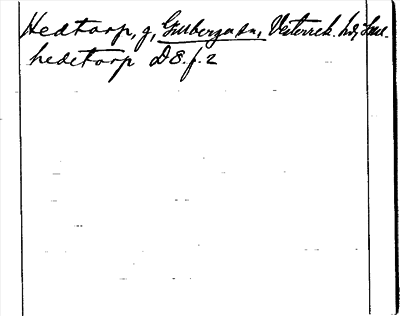 Hedtorp, g, Grubberga sn, Vesterrek. hd, Lau-
hedetorp D8.f.2